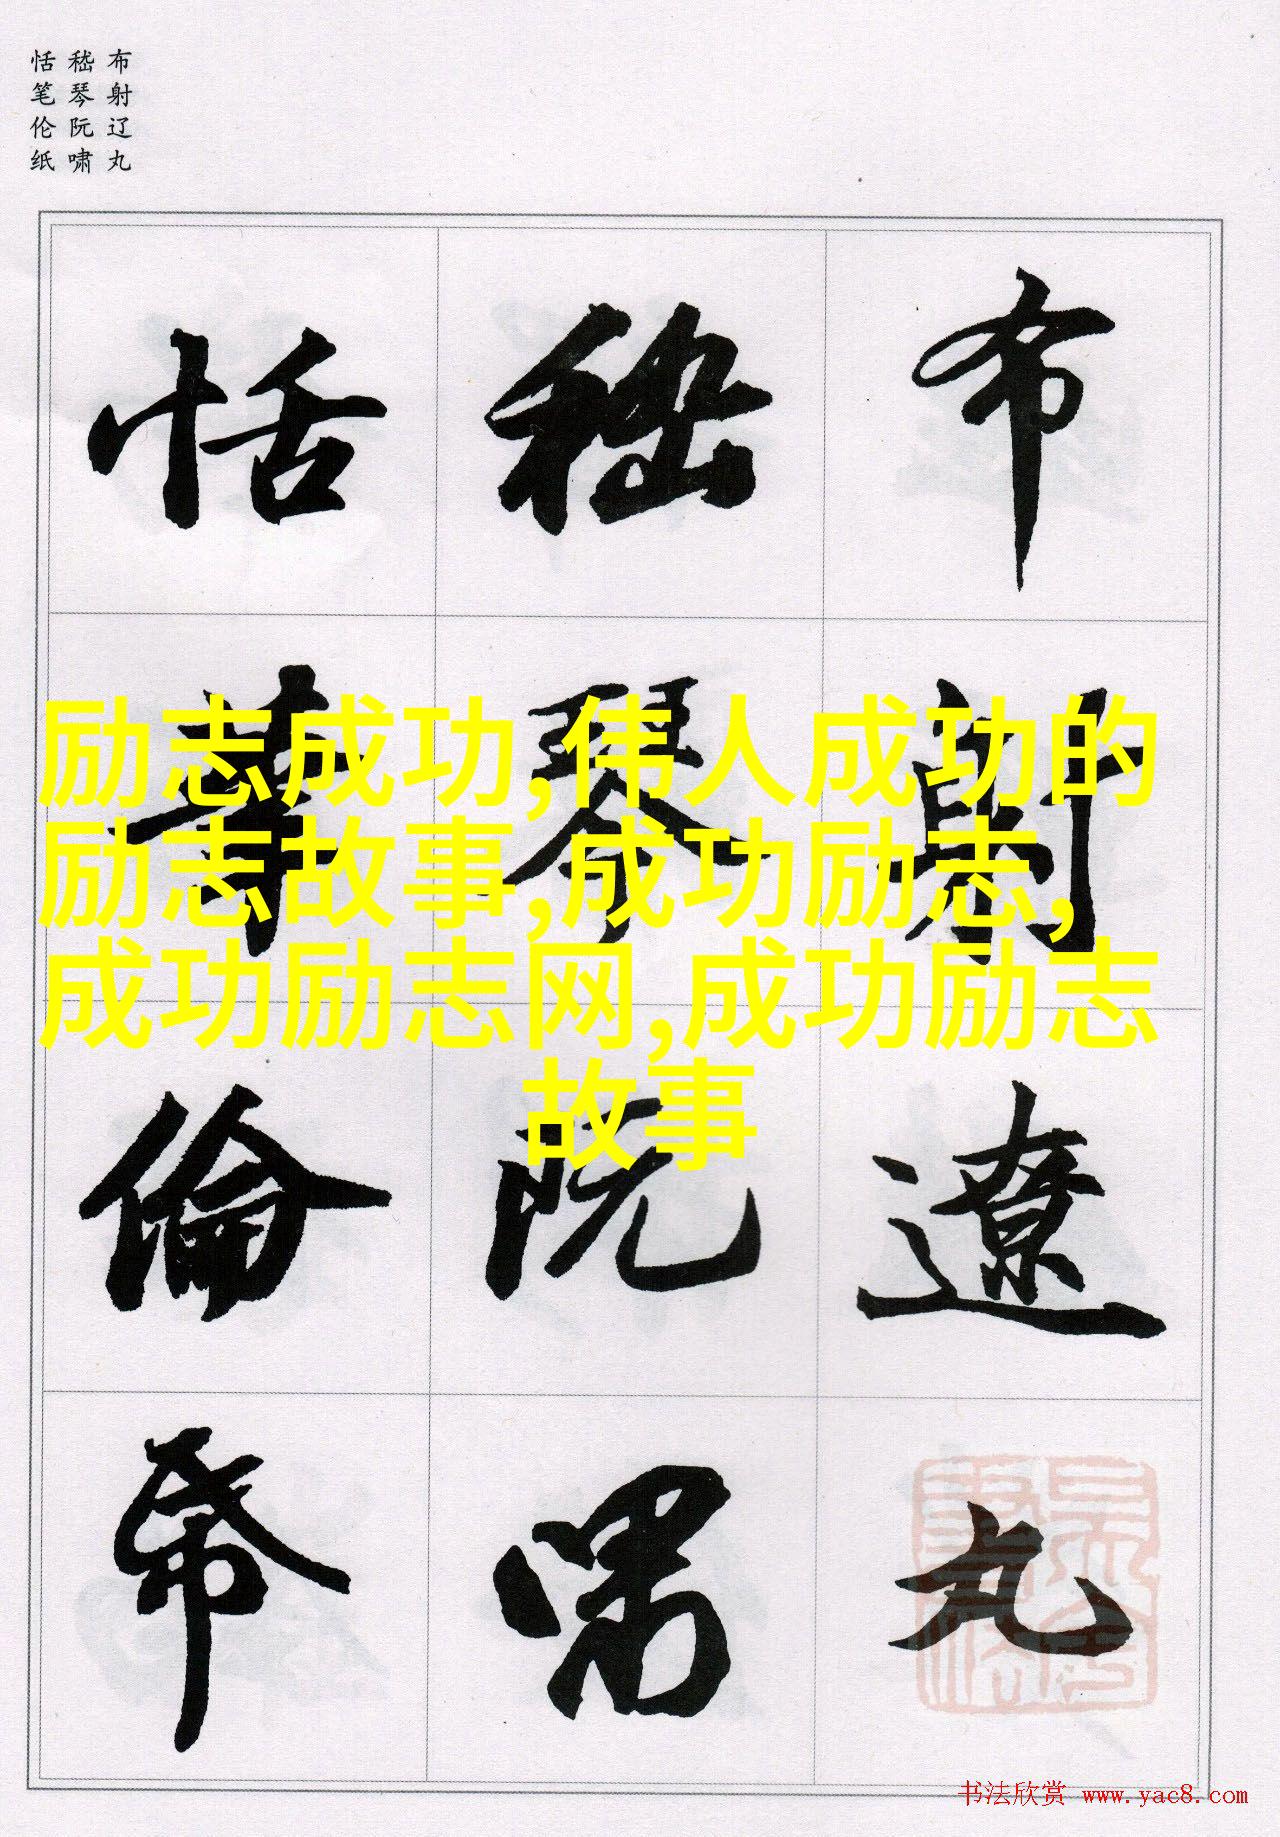 布射辽丸
嵇琴阮啸
恬笔伦纸
布射遼丸
嵇琴阮嘯
恬筆倫帋
励志成功,伟人成功的
励志故事,成功励志,
成功励志网,成功励志
故事
书法欣赏 www.yac8.com